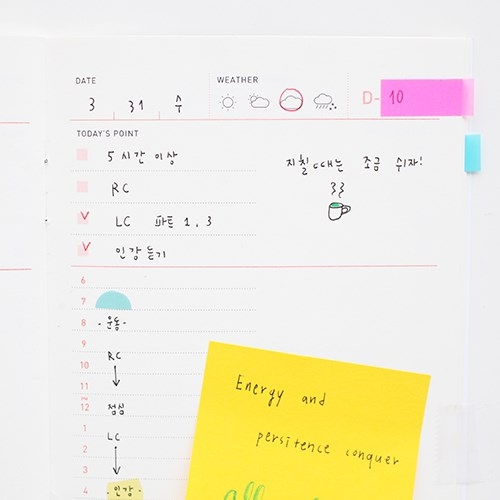 DATE
WEATHER
3 31 수
D-10
TODAY'S POINT
5시간 이상
RC
LC 파트 1, 3
인강 듣기
지칠 때는 조금 쉬자!
6
7
8 -운동-
9
10 RC
11
PM
12 점심
1
2 LC
3
4 -인강-
Energy and
persitence conquer
all